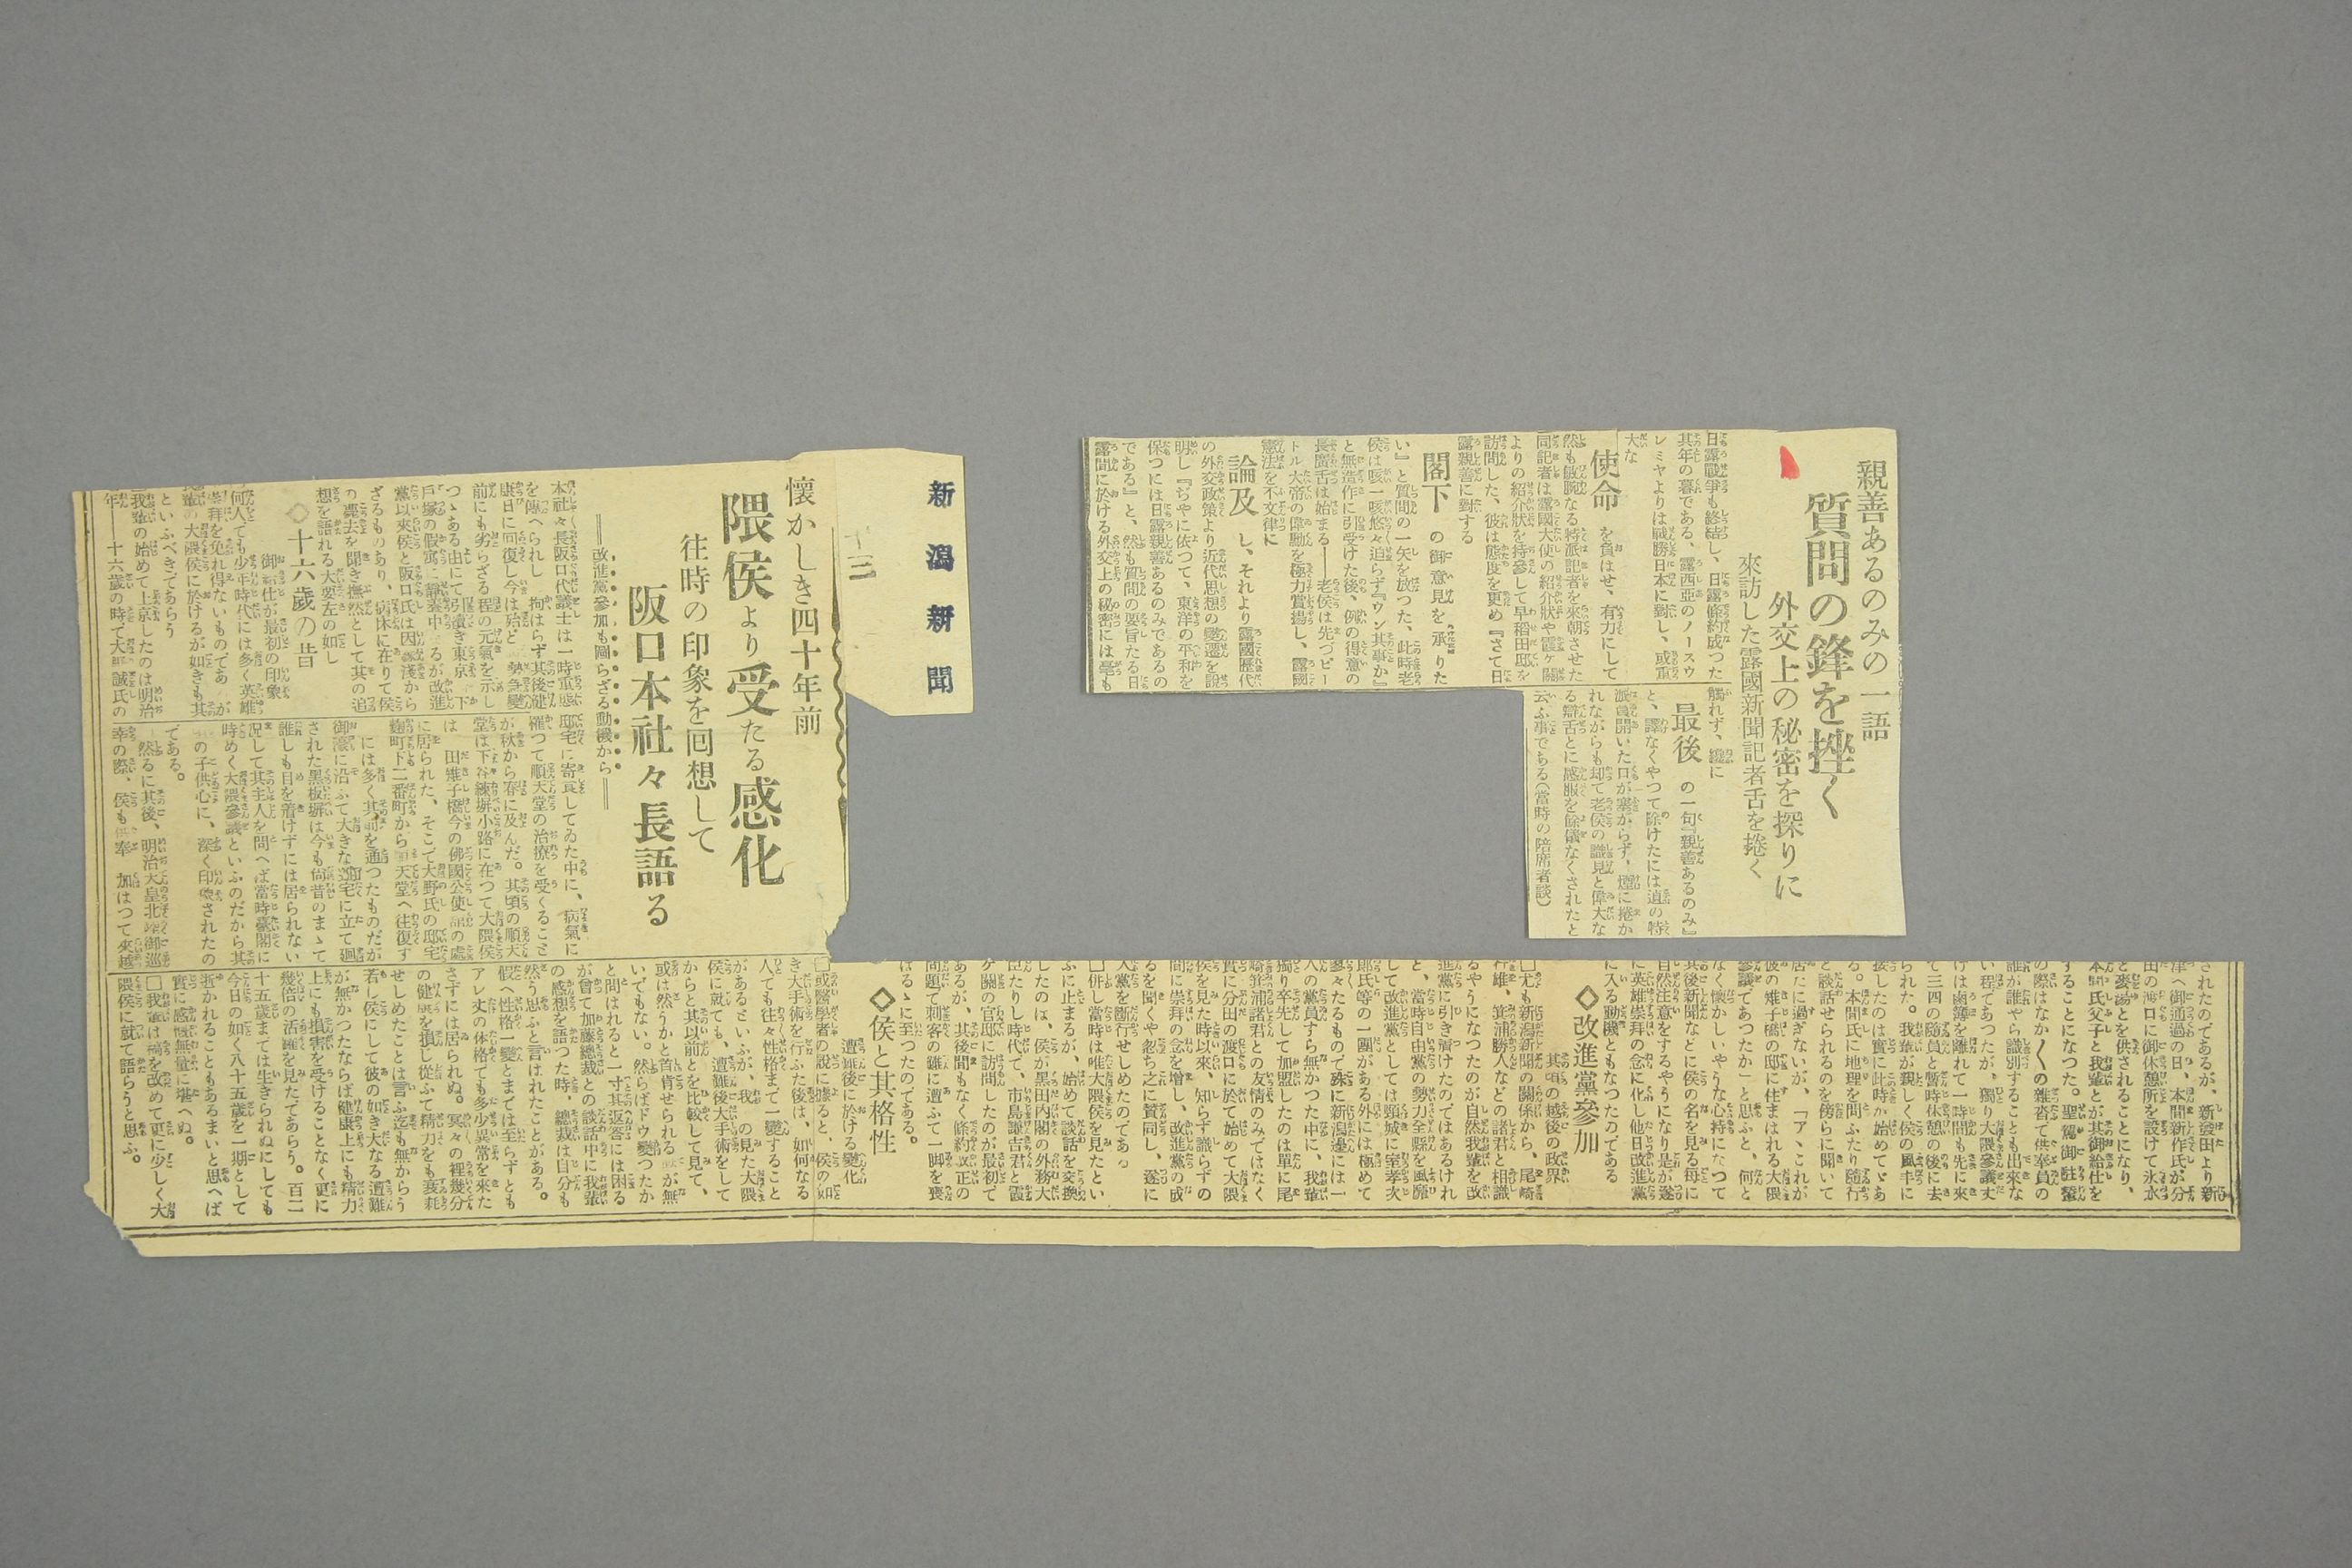 親善あるのみの一語
質問の鋒を挫く
外交上の秘密を探りに
來訪した露國新聞記者舌を捲く
日露戰爭も終結し、日露條約成つた
其年の暮である、露西亞のノースウ
レミヤよりは戰勝日本に對し、或重
大な
使命 を負はせ、有力にして
然も敏腕なる特派記者を來朝させた
同記者は露國大使の紹介狀や霞ヶ關
よりの紹介狀を持參して早稻田邸を
訪問した、彼は態度を更め『さて日
露親善に對する
閣下 の御意見を承りた
い』と質問の一矢を放つた、此時老
侯は咳一咳悠々迫らず『ウン其事か』
と無造作に引受けた後、例の得意の
長廣舌は始まる――老侯は先づピー
トル大帝の偉勳を極力賞揚し、露國
憲法を不文律に
論及 し、それより露國歷代
の外交政策より近代思想の變遷を説
明し『ぢやに依つて、東洋の平和を
保つには日露親善あるのみであるの
である』と、然も質問の要旨たる日
露間に於ける外交上の秘密には毫も
觸れず、纔に
最後 の一句『親善あるのみ』
と、譯なくやつて除けたには這の特
派員開いた口が塞がらず、煙に捲か
れながらも却て老侯の識見と偉大な
る辯舌とに感服を餘儀なくされたと
云ふ事である(當時の陪席者談)
新潟新聞
十三
懷かしき四十年前
隈侯より受たる感化
往時の印象を回想して
阪口本社々長語る
==改進黨參加も圖らざる動機から==
本社々長阪口代議士は一時重態
を傳へられし 拘はらず其後健
康日に回復し今は殆ど 勢急變
前にも劣らざる程の元氣を示し
つゝある由にて引續き東京 下
戸塚の假寓に靜養中 るが改進
黨以來侯と阪口氏は因 淺から
ざるものあり、病床に在りて侯
の薨去を聞き撫然として其の追
想を語れる大要左の如し
◇十六歳の昔
御給仕が最初の印象
何人ても少年時代には多く英雄
崇拜を免れ得ないものであ が
我輩の大隈侯に於けるが如きも其
といふべきであらう
我輩の始めて上京したのは明治
年――十六歳の時て大 誠氏の
邸宅に寄食してゐた中に、病氣に
罹つて順天堂の治療を受くること
が秋から春に及んだ。其頃の順天
堂は下谷練塀小路に在つて大隈侯
は 田雉子橋今の佛國公使 の處
に居られた、そこで大野氏の邸宅
麹町下二番町から 天堂へ往復す
には多く其前を通つたものだが
御濠に沿ふて大きな邸宅に立て廻
された黒板塀は今も尙昔のまゝて
誰しも目を着けずには居られない
況して其主人を問へば當時臺閣に
時めく大隈參議といふのだから其
の子供心に、深く印象されたの
である。
然るに其後、明治天皇北 御巡
幸の際、侯も供奉 加はつて來越
されたのであるが、新發田より新
津へ御通過の日、本間新作氏が分
田の渡口に御休憩所を設けて氷水
と麥湯とを供されることになり、
本間氏父子と我輩とが其御給仕を
することになつた。聖駕御駐輦
の際はなか〱の雜沓て供奉員の
誰が誰やら識別することも出來な
い程てあつたが、獨り大隈參議丈
けは鹵簿を離れて一時間も先に來
て三四の隨員と暫時休憩の後に去
られた。我輩が親しく侯の風丰に
接したのは實に此時が始めてゝあ
る。本間氏に地理を問ふたり隨行
と談話せられるのを傍らに聞いて
居たに過ぎないが、「アヽこれが
彼の雉子橋の邸に住まはれる大隈
參議てあつたか」と思ふと、何と
なく懷かしいやうな心持になつて
其後新聞などに侯の名を見る毎に
自然注意をするやうになり是が遂
に英雄崇拜の念に化し他日改進黨
に入る動機ともなつたのてある
◇改進黨參加
其頃の越後の政界
□尤も新潟新聞の關係から、尾崎
行雄、箕浦勝人などの諸君と相識
るやうになつたのが自然我輩を改
進黨に引き着けたのではあるけれ
と、當時自由黨の勢力全縣を風靡
して改進黨としては頸城に室孝次
郎氏等の一團がある外には極めて
寥々たるもので殊に新潟邊には一
人の黨員すら無かつた中に、我輩
獨り卒先して加盟したのは單に尾
崎箕浦諸君との友情のみではなく
實に分田の渡口に於て始めて大隈
侯を見た時以來、知らず識らずの
間に崇拜の念を增し、改進黨の成
るを聞くや忽ち之に贊同し、遂に
入黨を斷行せしめたのであつ
□併し當時は唯大隈侯を見たとい
ふに止まるが、始めて談話を交換
したのは、侯が黒田内閣の外務大
臣たりし時代て、市島謙吉君と霞
ケ關の官邸に訪問したのが最初て
あるが、其後間もなく條約改正の
問題て刺客の難に遭ふて一脚を喪
はるゝに至つたのである。
◇侯と其格性
遭難後に於ける變化
□或醫學者の説に據ると、侯の如
き大手術を行ふた後は、如何なる
人ても往々性格まで一變すること
があるといふが、我 の見た大隈
侯に就ても、遭難後大手術をして
からと其以前とを比較して見て、
或は然うかと首肯せられる が無
いでもない。然らばドウ變つたか
と問はれると一寸其返答には困る
が曾て加藤總裁との談話中に我輩
の感想を語つた時、總裁は自分も
然う思ふと言はれたことがある。
假へ性格一變とまでは至らずとも
アレ丈の体格ても多少異常を來た
さずには居られぬ。冥々の裡幾分
の健康を損じ從ふて精力をも衰耗
せしめたことは言ふ迄も無からう
若し侯にして彼の如き大なる遭難
が無かつたならば健康上にも精力
上にも損害を受けることなく更に
幾倍の活躍を見たてあらう。百二
十五歳までは生きられぬにしても
今日の如く八十五歳を一期として
逝かれることもあるまいと思へば
實に感慨無量に堪へぬ。
□我輩は稿を改めて更に少しく大
隈侯に就て語らうと思ふ。